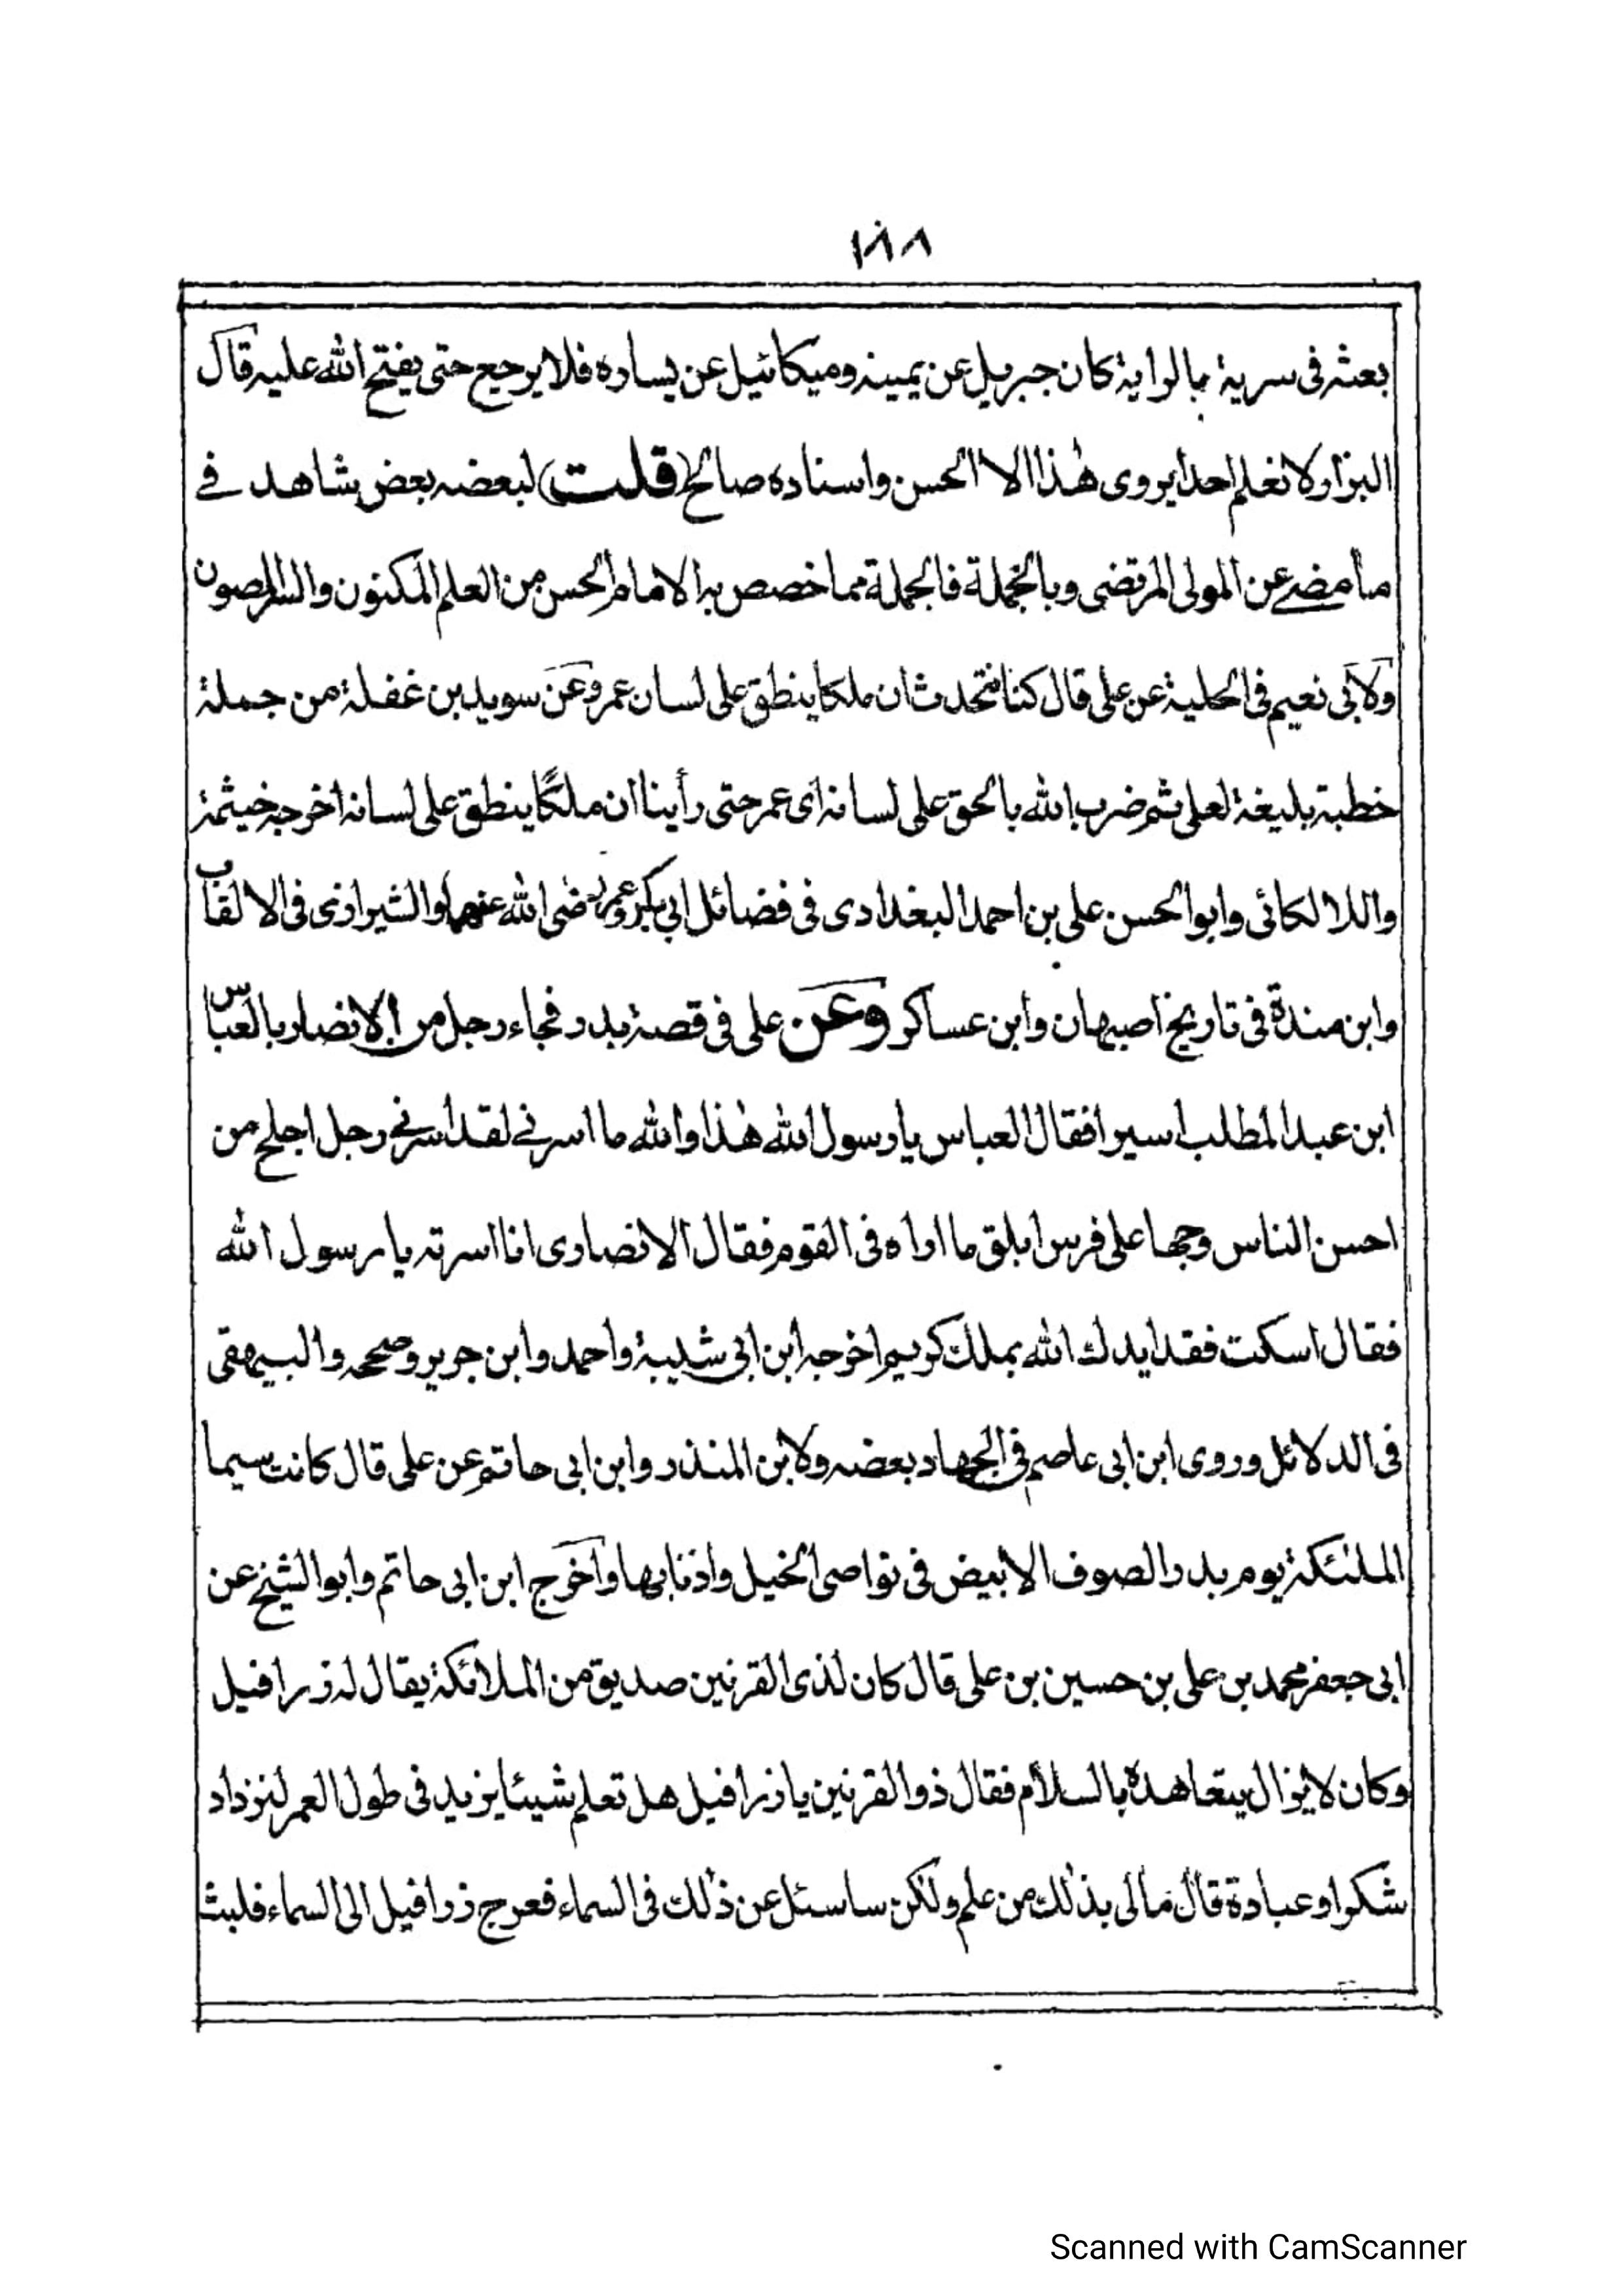 ١٨٨
بعثه فى سرية بالراية كان جبريل عن يمينه وميكائيل عن يساره فلا يرجع حتى يفتح الله عليه قال
البزار ولا نعلم احدا يروى هٰذا الا الحسن واسناده صالح (قلت) لبعضه بعض شاهد فے
ما مضے عن المولى المرتضى وبالجملة فالجملة مما خصص به الامام الحسن من العلم المكنون والسر المصون
ولابى نعيم فى الحلية عن على قال كنا نتحدث ان ملكا ينطق على لسان عمر وعن سويد بن غفلة من جملة
خطبة بليغة لعلى ثم ضرب الله بالحق على لسانه اى عمر حتى رأينا ان ملكًا ينطق على لسانه اخرجه خيثمة
واللالكائى وابوالحسن على بن احمد البغدادى فى فضائل ابى بكر وعمر رضى الله عنهما والشيرازى فى الالقاب
وابن مندة فى تاريخ اصبهان وابن عساكر وعن على فى قصة بدر فجاء رجل من الانصار بالعباس
ابن عبد المطلب اسيرا فقال العباس يا رسول الله هٰذا والله ما اسرنے لقد اسرنے رجل اجلح من
احسن الناس وجها على فرس ابلق ما اراه فى القوم فقال الانصارى انا اسرته يا رسول الله
فقال اسكت فقد ايدك الله بملك كريم اخرجه ابن ابى شيبة واحمد وابن جرير وصححه والبيهقى
فى الدلائل وروى ابن ابى عاصم فى الجهاد بعضه ولابن المنذر وابن ابى حاتم عن على قال كانت سيما
الملٰئكة يوم بدر الصوف الابيض فى نواصى الخيل واذنابها واخرج ابن ابى حاتم وابوالشيخ عن
ابى جعفر محمد بن على بن حسين بن على قال كان لذى القرنين صديق من الملائكة يقال له زرافيل
وكان لا يزال يتعاهده بالسلام فقال ذوالقرنين يا زرافيل هل تعلم شيئا يزيد فى طول العمر لنزداد
شكرا وعبادة قال مالى بذلك من علم ولكن ساسئل عن ذٰلك فى السماء فعرج زرافيل الى السماء فلبث
Scanned with CamScanner